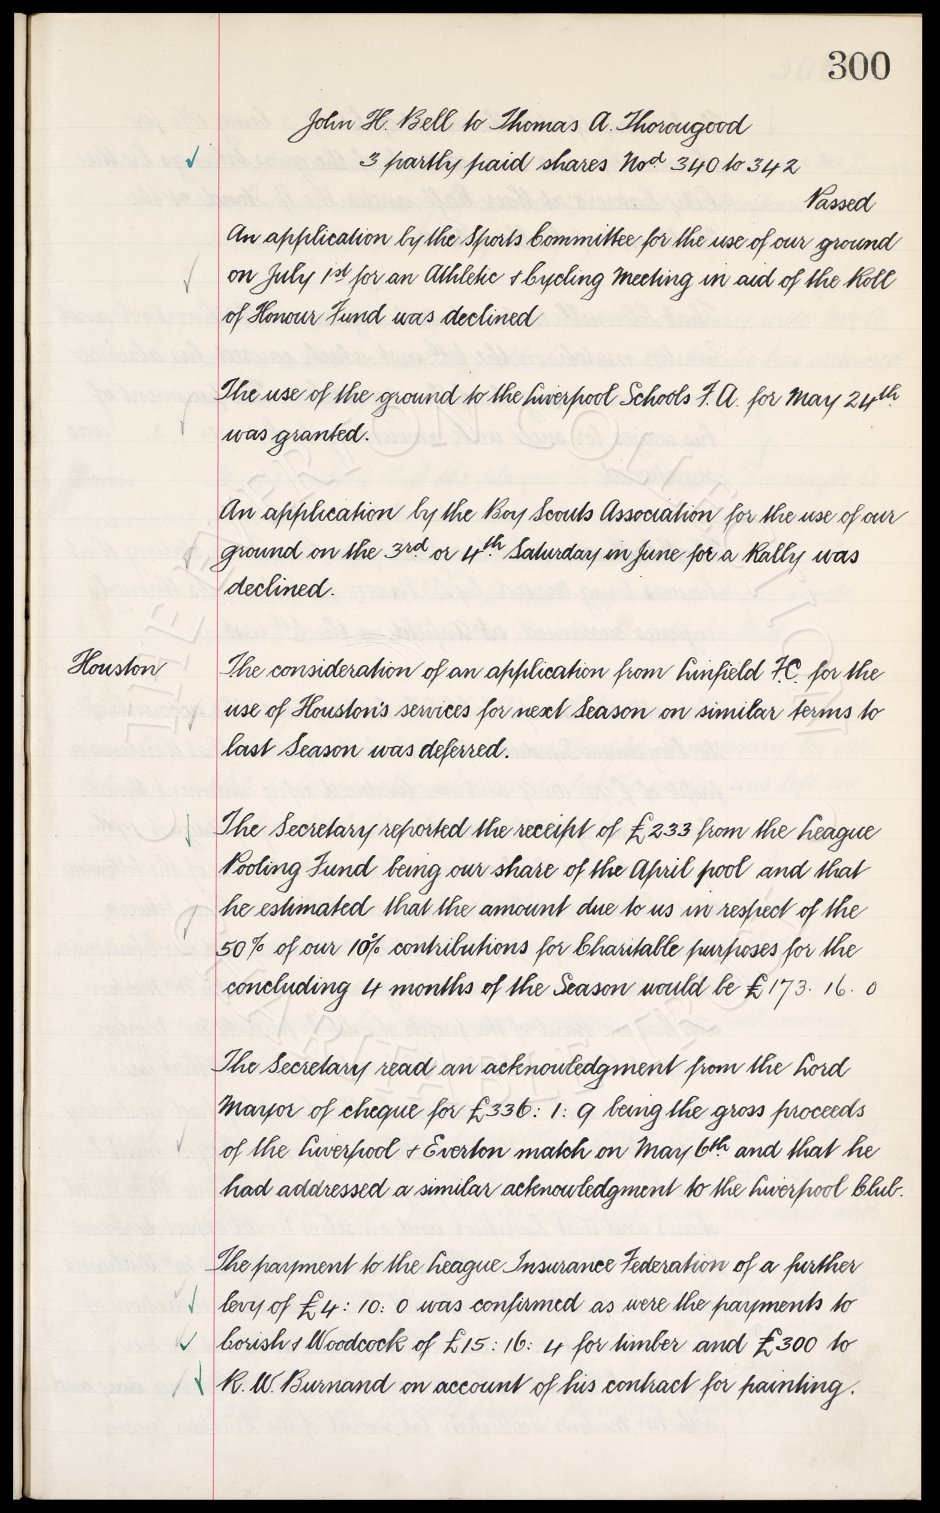 300
John H. Bell to Thomas A. Thorougood
3 partly paid shares Nod 340 to 342
Passed
An application by the Sports Committee for the use of our ground
on July 1st for an Athletic & Cycling Meeting in aid of the Roll
of Honour Fund was declined
The use of the ground to the Liverpool Schools F.A. for May 24th
was granted.
An application by the Boy Scouts Association for the use of our
ground on the 3rd or 4th Saturday in June for a Rally was
declined.
Houston
The consideration of an application from Linfield F.C. for the
use of Houston's services for next Season on similar terms to
last Season was deferred.
The Secretary reported the receipt of £233 from the League
Pooling Fund being our share of the April pool and that
he estimated that the amount due to us in respect of the
50% of our 10% contributions for Charitable purposes for the
concluding 4 months of the Season would be £173. 16. 0
The Secretary read an acknowledgment from the Lord
Mayor of cheque for £336: 1: 9 being the gross proceeds
of the Liverpool & Everton match on May 6th and that he
had addressed a similar acknowledgment to the Liverpool Club.
The payment to the League Insurance Federation of a further
levy of £4: 10: 0 was confirmed as were the payments to
Corish & Woodcock of £15: 16: 4 for timber and £300 to
R. W. Burnand on account of his contract for painting.